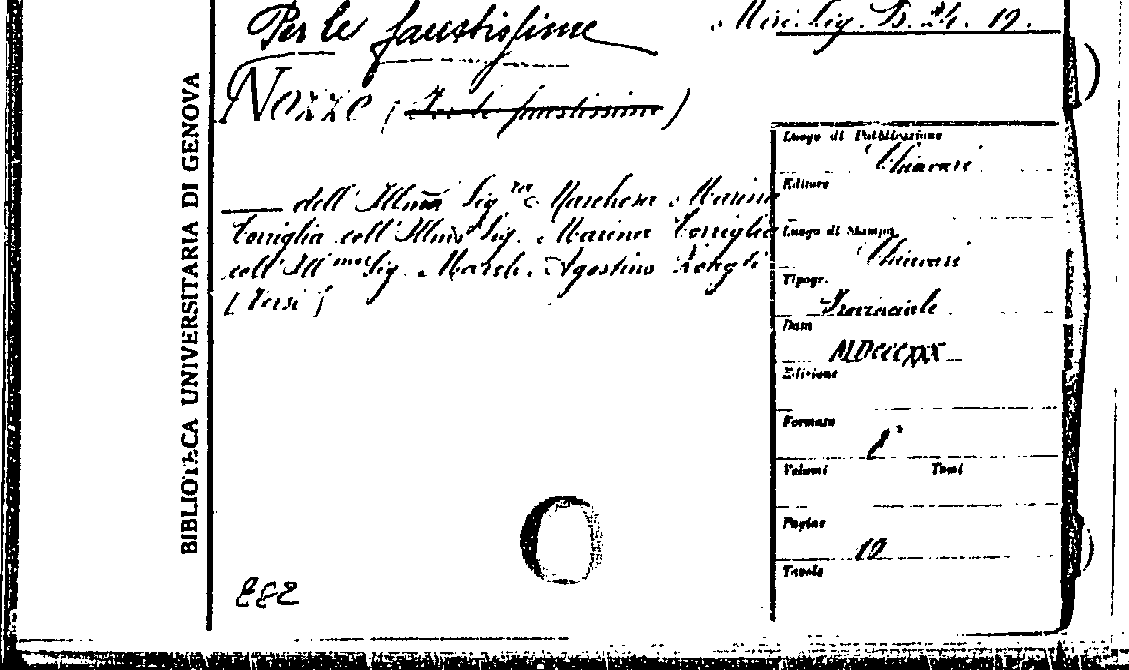 Per le faustissime
Misc. Lig. B. 24. 19.
Nozze (Per le faustissime)
___ dell' Illma Sig.ra Marchesa Marina
Torriglia coll' Illmo Sig. Marina Torriglia
coll' Ill mo Sig. March. Agostino
(Versi)
Luogo di Pubblicazione
Chiavari
Editore
Luogo di Stampa
Chiavari
Tipogr.
Provinciale
Data
MDCCCXXX
Edizione
Formato
8°
Volumi Tomi
Pagine
10
Tavole
BIBLIOTECA UNIVERSITARIA DI GENOVA
882